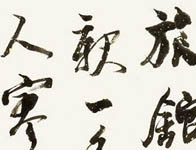 旅館
親一
人寥